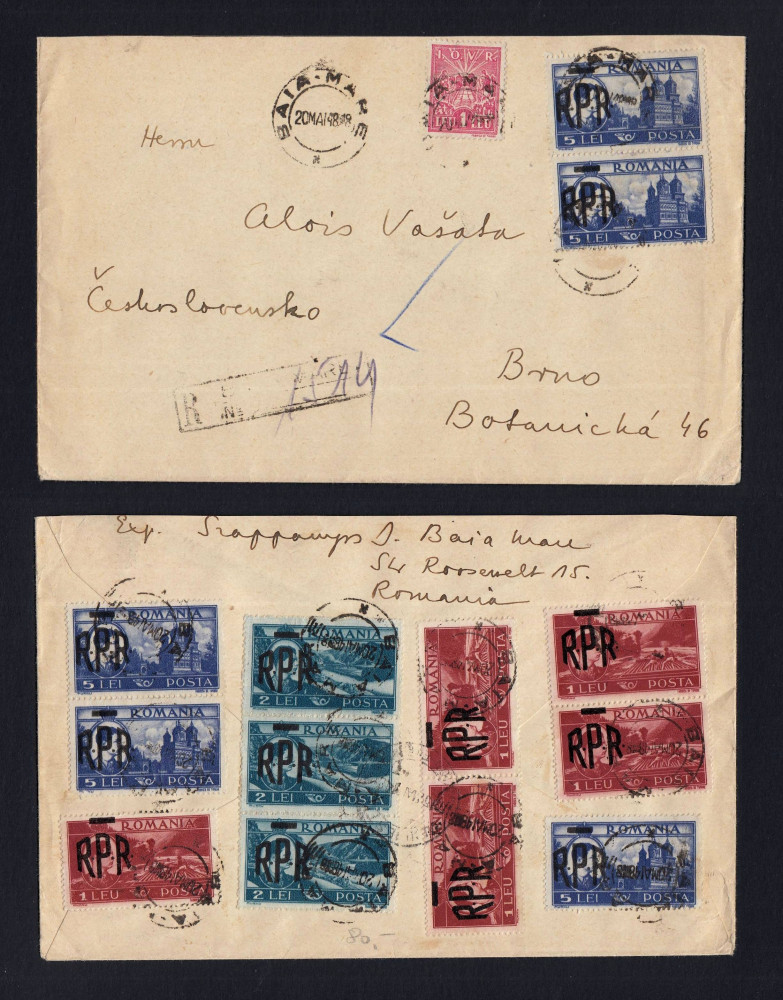 BAIA-MARE
20MAI48
I.O.V.R.
UN LEU
ROMANIA
RPR
5 LEI POSTA
ROMANIA
RPR
5 LEI POSTA
Herrn
Alois Vašata
Československo
R
No
1514
Brno
Botanická 46
Exp. J. Baia Mare
Str Roosevelt 15.
Romania
ROMANIA
RPR
5 LEI POSTA
ROMANIA
RPR
5 LEI POSTA
ROMANIA
RPR
1 LEU POSTA
ROMANIA
RPR
2 LEI POSTA
ROMANIA
RPR
2 LEI POSTA
ROMANIA
RPR
2 LEI POSTA
ROMANIA
RPR
1 LEU POSTA
ROMANIA
RPR
1 LEU POSTA
ROMANIA
RPR
1 LEU POSTA
ROMANIA
RPR
1 LEU POSTA
ROMANIA
RPR
5 LEI POSTA
80.-